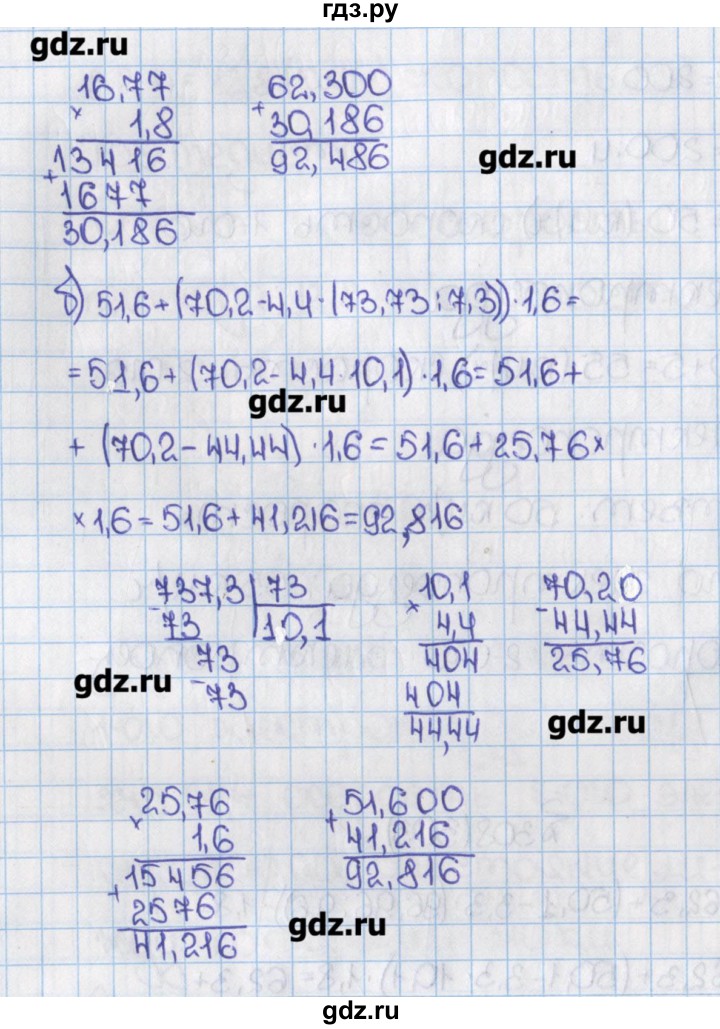 гдз.ру
gdz.ru
16,77
× 1,8
13416
+ 1677
30,186
62,300
+ 30,186
92,486
gdz.ru
б) 51,6 + (70,2 - 4,4 · (73,73 : 7,3)) · 1,6 =
= 51,6 + (70,2 - 4,4 · 10,1) · 1,6 = 51,6 +
gdz.ru
+ (70,2 - 44,44) · 1,6 = 51,6 + 25,76 ×
× 1,6 = 51,6 + 41,216 = 92,816
737,3 | 73
- 73 | 10,1
73
- 73
gdz.ru
10,1
× 4,4
404
404
44,44
70,20
- 44,44
25,76
gdz.ru
25,76
× 1,6
+ 15456
2576
41,216
51,600
+ 41,216
92,816
gdz.ru
gdz.ru